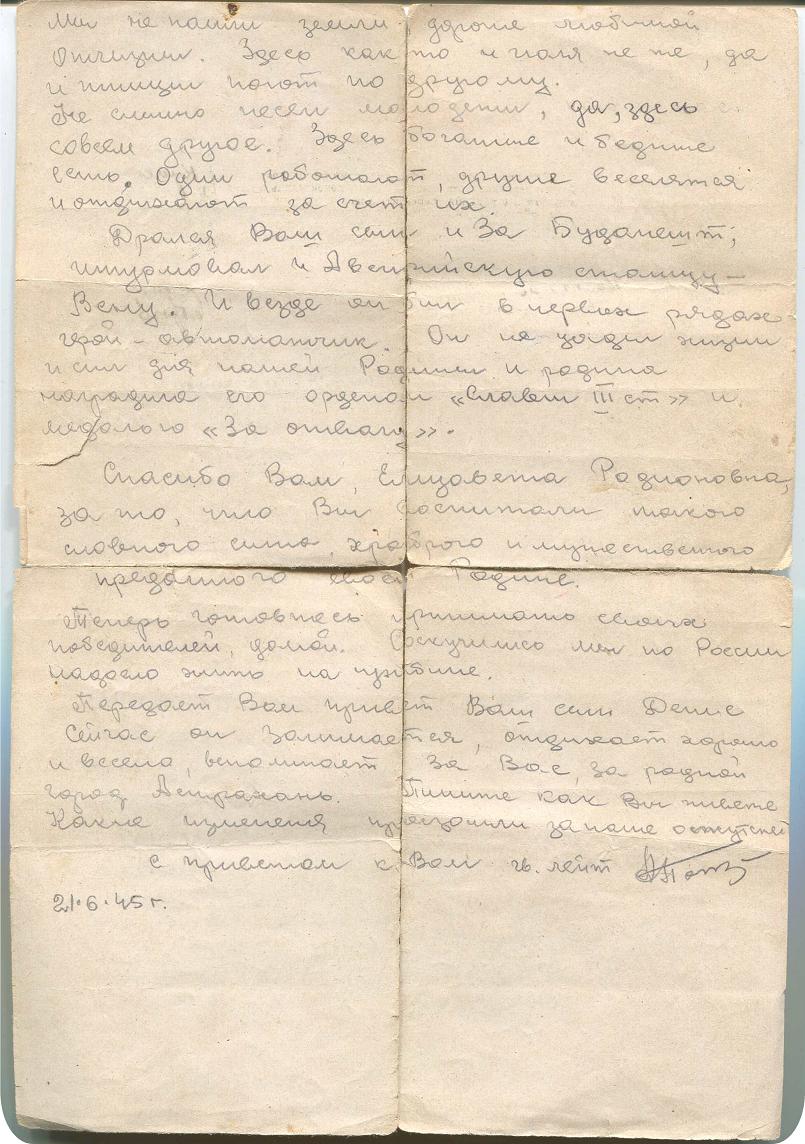 Мы не нашли земли дороже любимой
отчизны. Здесь как то и поля не те, да
и птицы поют по другому.
Не слышно песен молодежи, да, здесь
совсем другое. Здесь богатые и бедные
есть. Одни работают, другие веселятся
и отдыхают за счет их.
Дрался Ваш сын и За Будапешт,
штурмовал и Австрийскую столицу –
Вену. И везде он был в первых рядах
герой – автоматчик. Он не щадил жизни
и сил для нашей Родины и родина
наградила его орденом «Славы III ст» и
медалью «За отвагу».
Спасибо Вам, Елизавета Родионовна,
за то, что Вы воспитали такого
славного сына, храброго и мужественного
преданного своей Родине.
Теперь готовтесь принимать своих
победителей, домой. Соскучились мы по России
надоело жить на чужбине.
Передает Вам привет Ваш сын Денис
Сейчас он занимается, отдыхает хорошо
и весело, вспоминает За Вас, за родной
город Астрахань. Пишите как Вы живете
Какие изменения произошли за наше
с приветом к Вам гв. лейт
21.6.45 г.